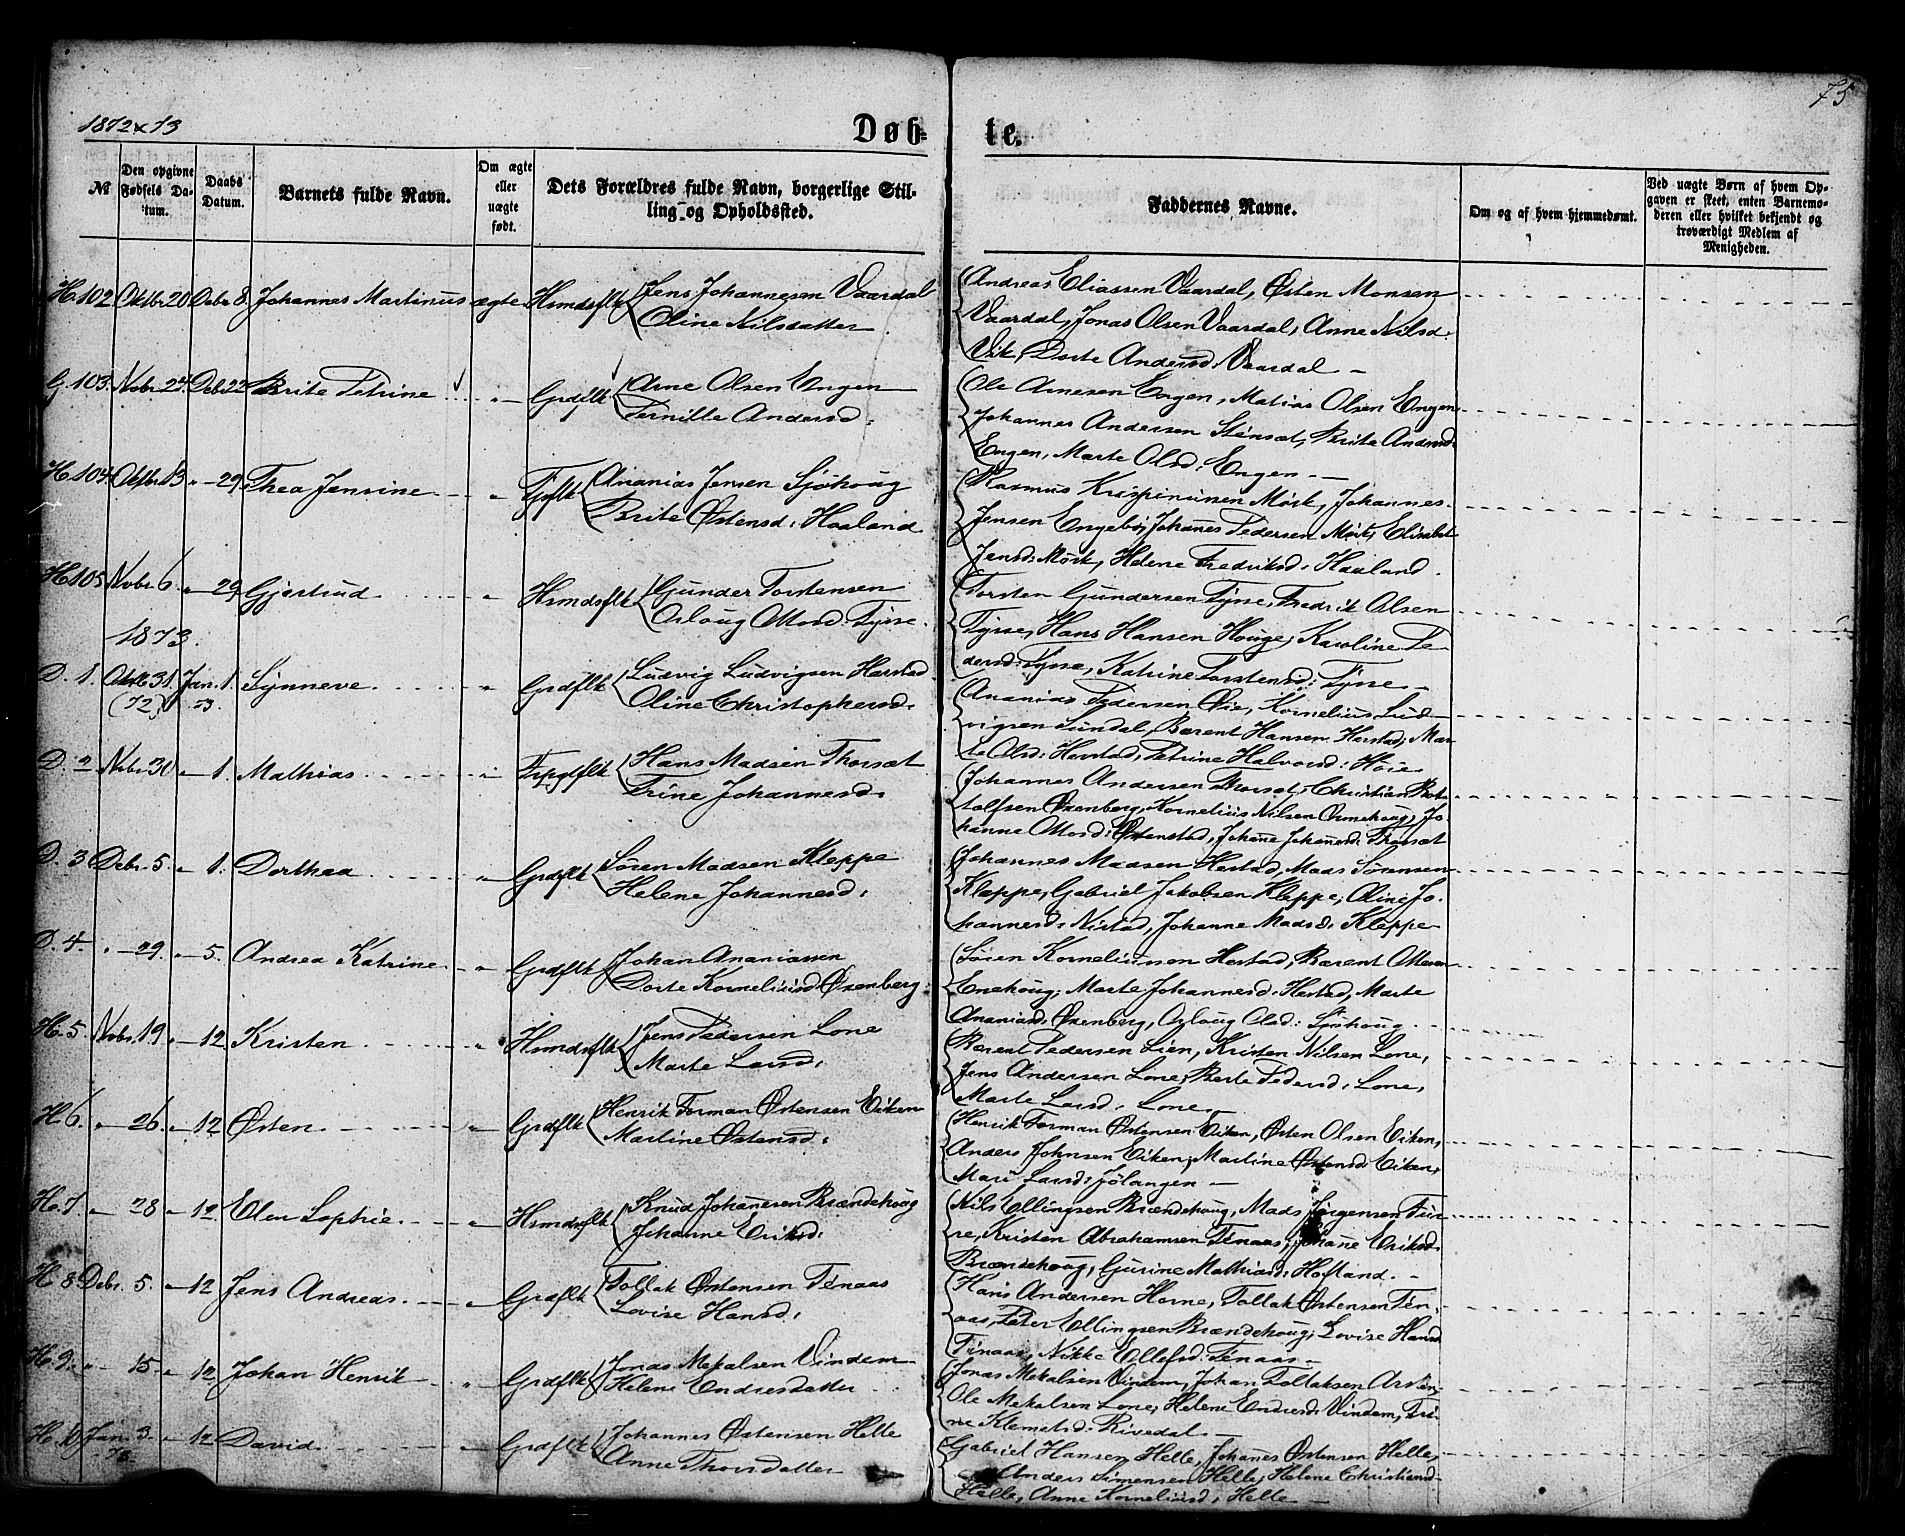 75
1872 & 73
Døb-
te.
№
Den opgivne Fødsels Da-tum.
Daabs Datum.
Barnets fulde Navn.
Om ægte eller uægte født.
Dets Forældres fulde Navn, borgerlige Stil-
ling og Opholdsted.
Faddernes Navne.
Om og af hvem hjemmedøbt.
Ved uægte Børn af hvem Op-
gaven er skeet, enten Barnemo-
deren eller hvilket bekjendt og
troværdigt Medlem af
Menigheden.
H. 102 Oktbr 20 Decbr 8. Johannes Martinus ægte Hsmdsflk Jens Johannesen Vaardal
Oline Nilsdatter
Andreas Eliassen Vaardal, Østen Monsen
Vaardal, Jonas Olsen Vaardal, Anne Nilsd.
Vik, Dorte Andersd. Vaardal —
G. 103. Nobr 24 Debr 22 Brite Petrine " Grdflk Arne Olsen Engen
Pernille Andersd:
Ole Arnesen Engen, Matias Olsen Engen
Johannes Andersen Stensæt, Brite Andersd
Engen, Marte Olsd: Engen —
H. 104 Oktbr 13 " — 29. Thea Jensine " Ananias Jensen Sjøhoug
Brite Østensd: Haaland
Rasmus Krispinusen Mørk, Johannes
Jensen Engebø, Johanes Pedersen Mørk, Elisabet
Jensd: Mørk, Helene Fredriksd: Haaland.
H. 105 Novbr 6. " — 29 Gjertrud " Hsmdsflk Gunder Torstensen
Oslaug Ottersd Tysse.
Torsten Gundersen Tysse, Fredrik Olsen
Tysse, Hans Hansen Houge, Karoline Pe-
dersd: Tysse, Katrine Torstensd: Tysse —
1873.
D. 1. Oktb 31 (72) Jan. 1. 73 Synneve " Grdflk Ludvig Ludvigsen Harstad
Oline Christophersd.
Ananias Pedersen Øie, Kornelius Lud-
vigsen Sundal, Bærent Hansen Herstad, Mar-
te Olsd: Herstad, Petrine Halvorsd: Høie
D. 2 Nvbr 30 " — 1. Mathias Hans Madsen Thorsæt
Trine Johannesd.
Johannes Andersen Thorsæt, Christian Bot-
tolfsen Øxenberg, Kornelius Nilsen Ormehoug, Jo-
hanne Ottersd: Østenstad, Johane Johanesd: Thorsæt
D. 3 Debr. 5 " — 1. Dorthea " Grdflk Søren Madsen Kleppe
Helene Johannesd:
Johannes Madsen Hestad, Mads Sørensen
Kleppe, Gabriel Jakobsen Kleppe, Oline Jo-
hannesd: Nistad, Johanne Madsd: Kleppe
D. 4. " — 29. " — 5. Andrea Katrine " Grdflk Johan Ananiassen
Dorte Korneliusd Øxenberg
Søren Korneliusson Hestad, Bærent Ottersen
Enehoug, Marte Johannesd: Hestad, Marte
Ananiasd: Øxenberg, Oslaug Olsd: Sjøhoug.
H. 5. Novbr 19 " — 12. Kristen " Hsmdsflk Jens Pedersen Lone
Marte Larsd:
Bærent Pedersen Lien, Kristen Nilsen Lone,
Jens Andersen Lone, Berte Pedersd: Lone,
Marte Larsd: Lone —
H 6. " — 26. " — 12 Østen " Grdflk Henrik Forman Østensen Eiken
Martine Østensd:
Henrik Forman Østensen Eiken, Østen Olsen Eiken,
Anders Johnsen Eiken, Martine Østensd: Eiken,
Mari Larsd: Jølangen —
H. 7. " — 28 " — 12. Elen Sophie " Hsmdsflk Knud Johanesen Brændehoug
Johanne Eriksd:
Nils Ellingsen Brændehoug, Mads Jørgensen
Kristen Abrahamsen Tenaas, Johane Eriksd.
Brændehoug, Gurine Mathiasd: Hofland. —
H 8. Debr. 5. " — 12 Jens Andreas " Grdflk Tollak Østensen Tenaas
Lovise Hansd:
Hans Andersen Horne, Tollak Østensen Ten-
aas, Peter Ellingsen Brændehoug, Lovise Hansd
Tenaas, Nikke Ellefsd: Tenaas —
H. 9. " — 15. " — 12 Johan Henrik " Grdflk Jonas Mekalsen Vindem
Helene Endresdatter
Jonas Mekalsen Vindem, Johan Tollaksen
Ole Mekalsen Lone, Helene Endresd: Vindem, Tri-
ne Klemetsd: Rivedal —
H. 10 Jan. 3. 73. " — 12 David Grdflk Johannes Østensen Helle
Anne Thorsdatter
Gabriel Hansen Helle, Johanes Østensen Helle,
Anders Simensen Helle, Helene Christiansd-
Helle, Anne Korneliusd: Helle —